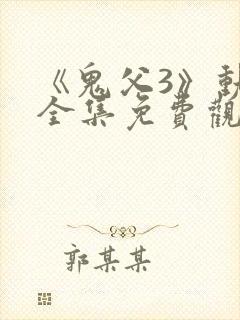 《鬼父3》
全集免費觀
郭某某